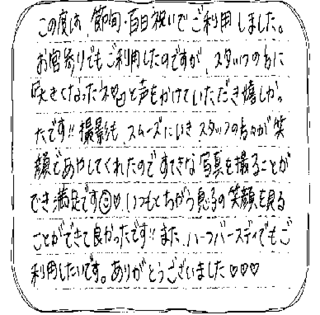 この度は、節句・百日祝いでご利用しました。
お宮参りでもご利用したのですが、スタッフの方に
大きくなったネ♡と声をかけていただき嬉しかっ
たです!! 撮影も、スムーズにいき スタッフの方々が笑
顔であやしてくれたのですてきな写真を撮ることが
でき満足です☺♡ いつもとちがう息子の笑顔を見る
ことができて良かったです!! また、ハーフバースディでもご
利用したいです。ありがとうございました♡♡♡